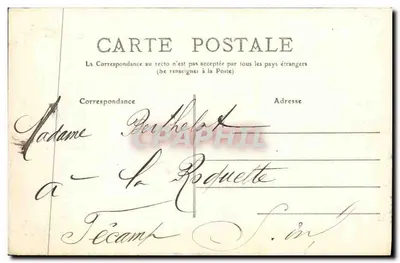 CARTE POSTALE
La Correspondance au recto n'est pas acceptée par tous les pays étrangers
(Se renseigner à la Poste)
Correspondance Adresse
Madame Berthelot
CPAPHIL
à la Roquette
Fécamp S. inf